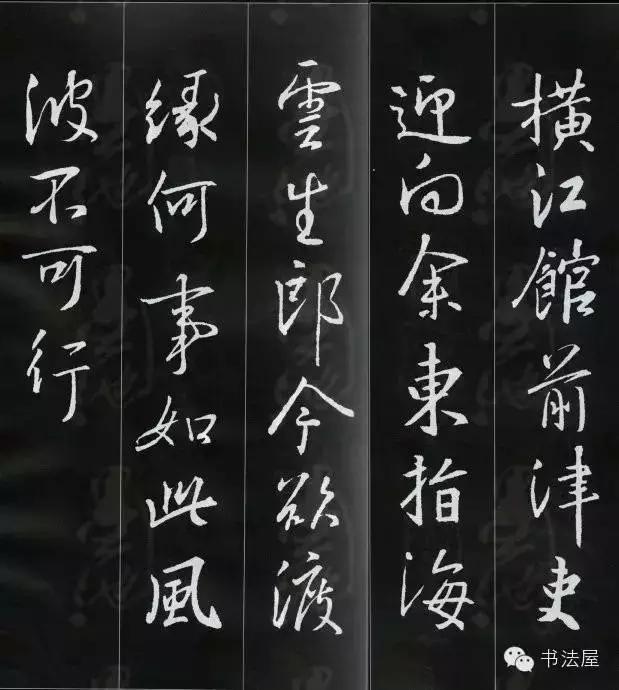 橫江館前津吏
迎向余東指海
雲生郎今欲渡
緣何事如此風
波不可行
书法屋